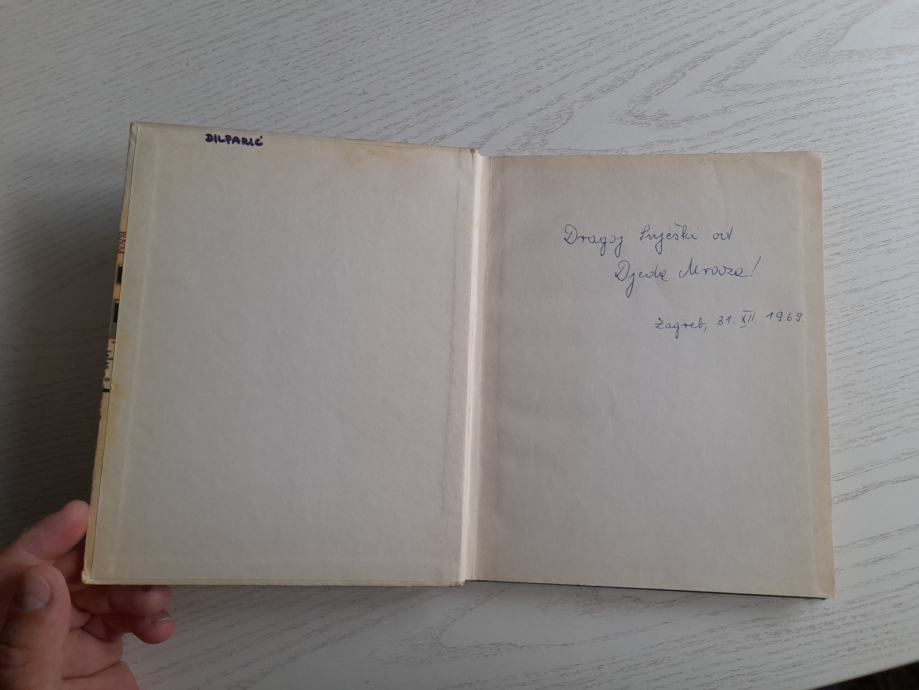 DILPARIĆ
Dragoj Snješki od
Djeda Mraza!
Zagreb, 31. XII. 1969